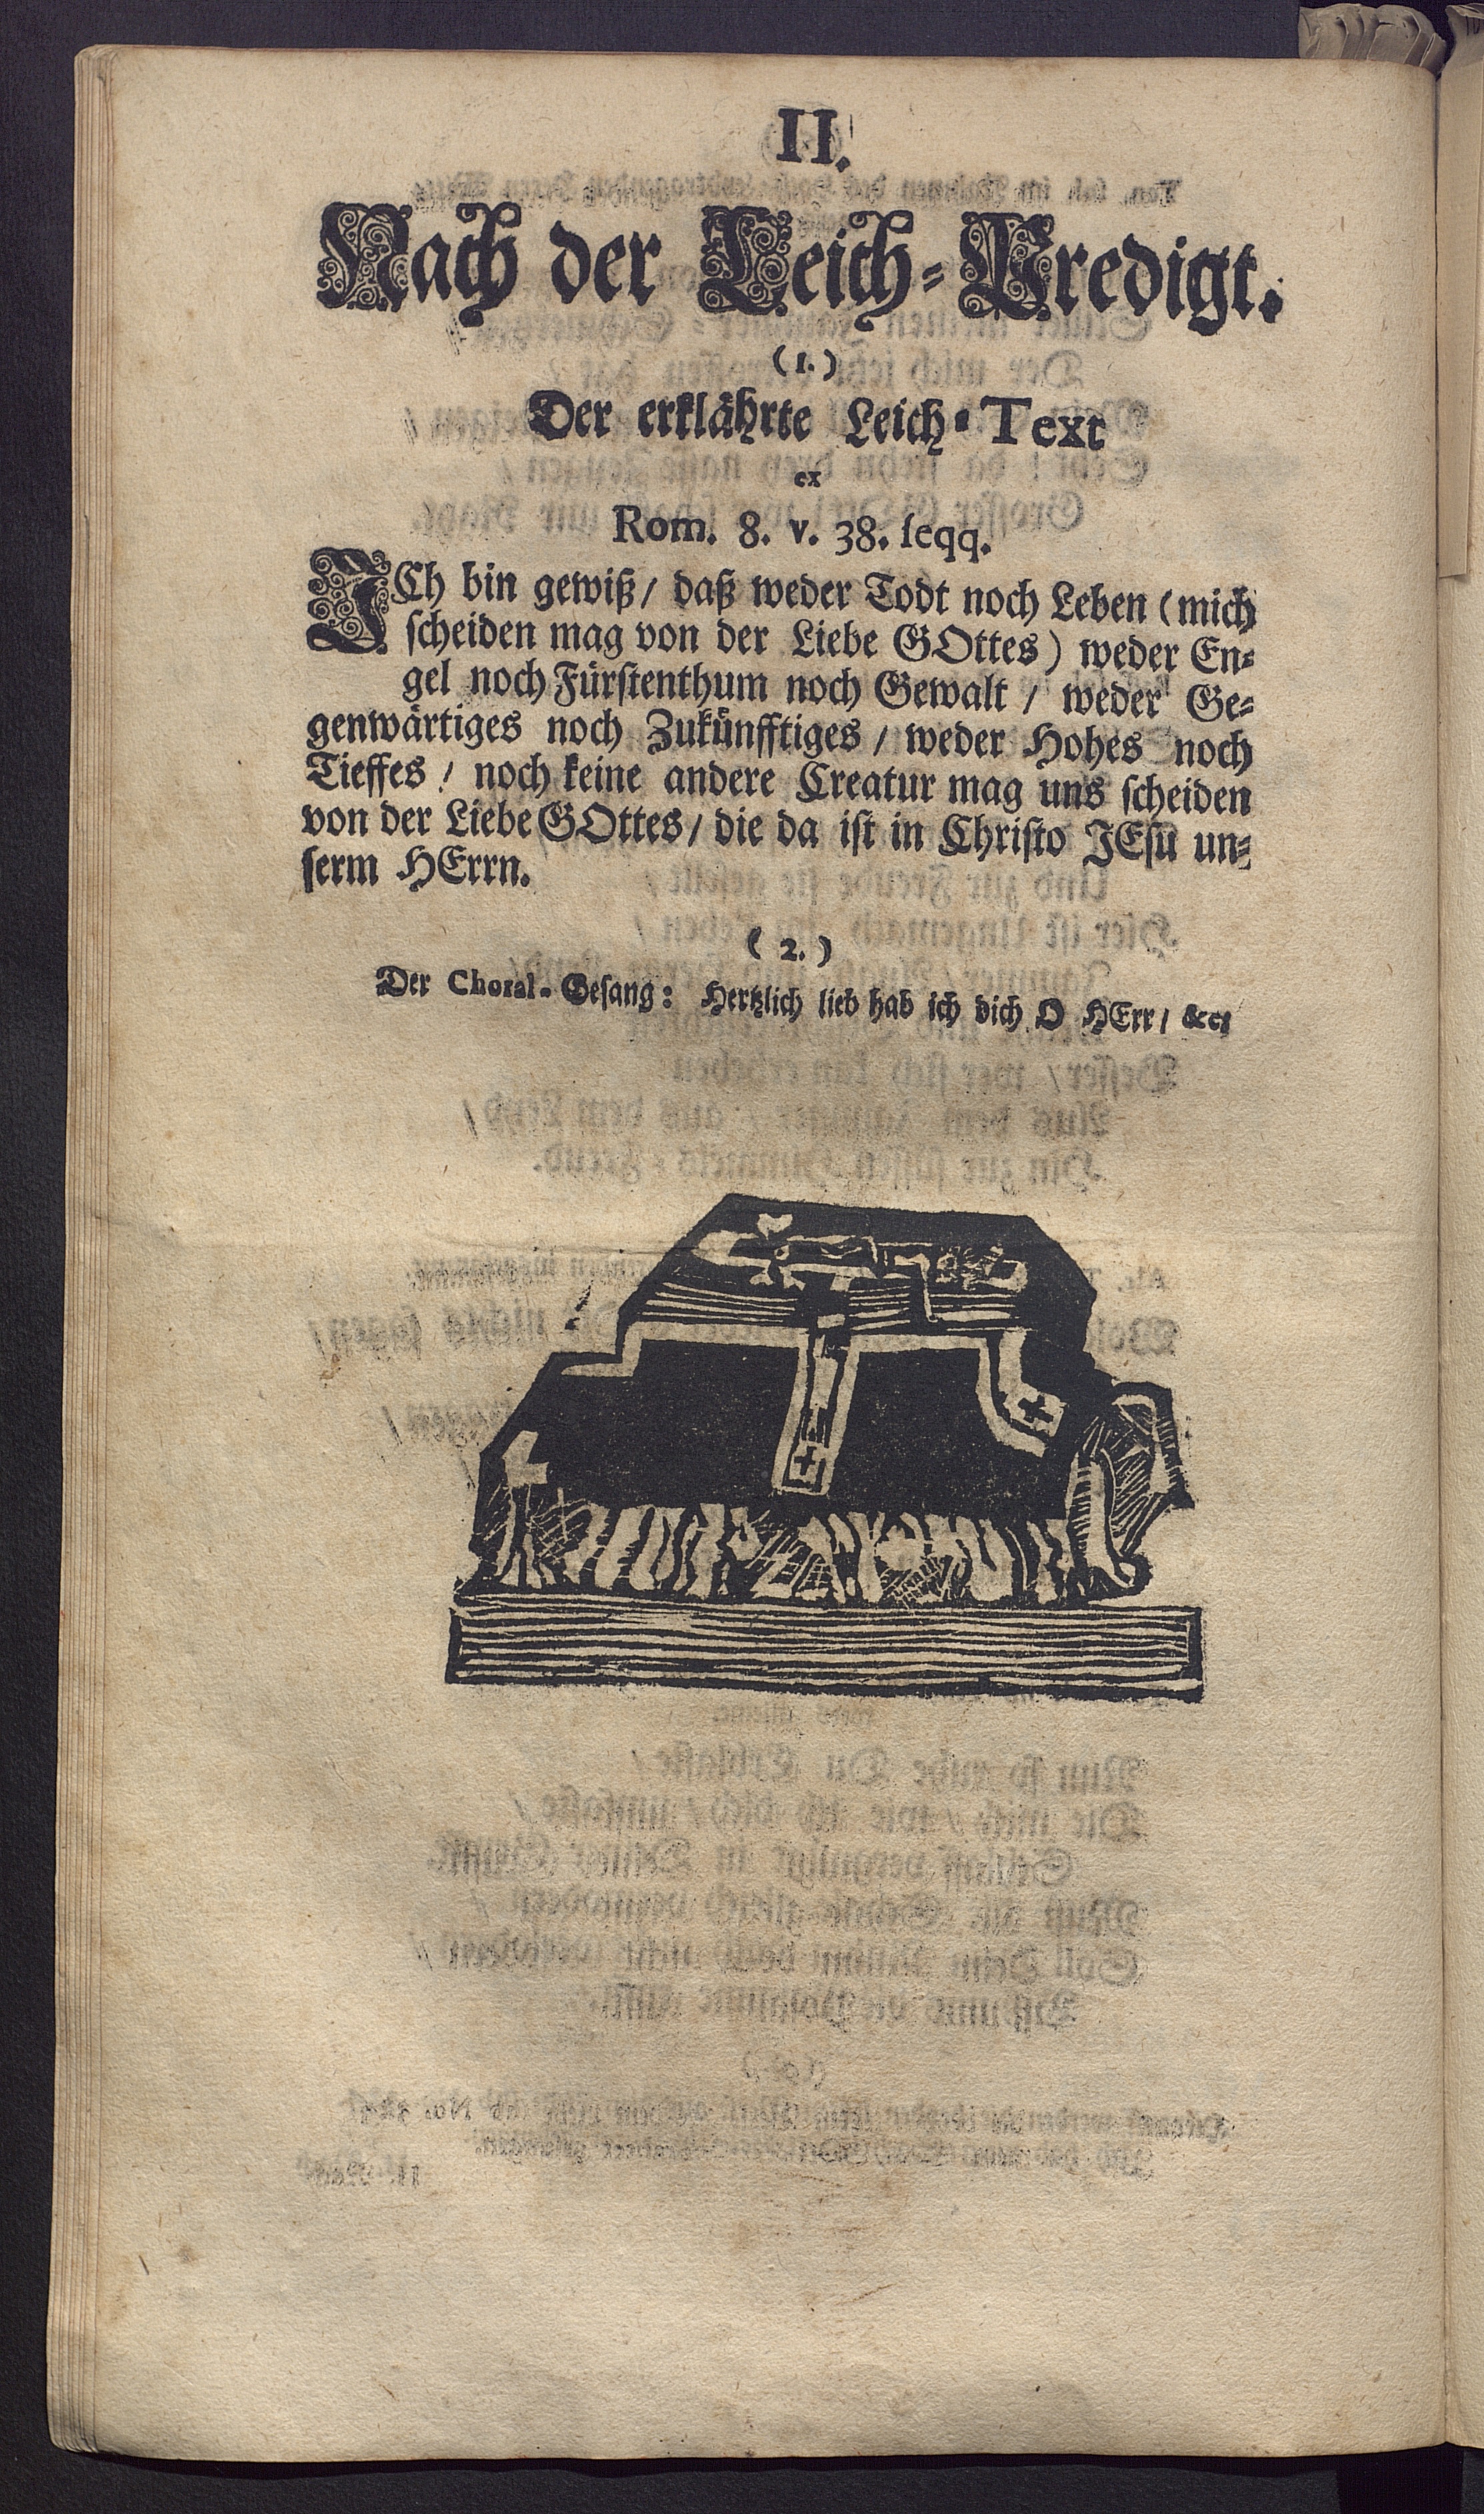 II.
Nach der Leich-Predigt.
(1.)
Der erklährte Leich-Text
ex
Rom. 8. v. 38. seqq.
ICh bin gewiß/ daß weder Todt noch Leben (mich
scheiden mag von der Liebe GOttes) weder En-
gel noch Fürstenthum noch Gewalt / weder Ge-
genwärtiges noch Zukünfftiges / weder Hohes noch
Tieffes / noch keine andere Creatur mag uns scheiden
von der Liebe GOttes/ die da ist in Christo JEsu un-
serm HErrn.
(2.)
Der Choral-Gesang: Hertzlich lieb hab ich dich O HErr/ &c.